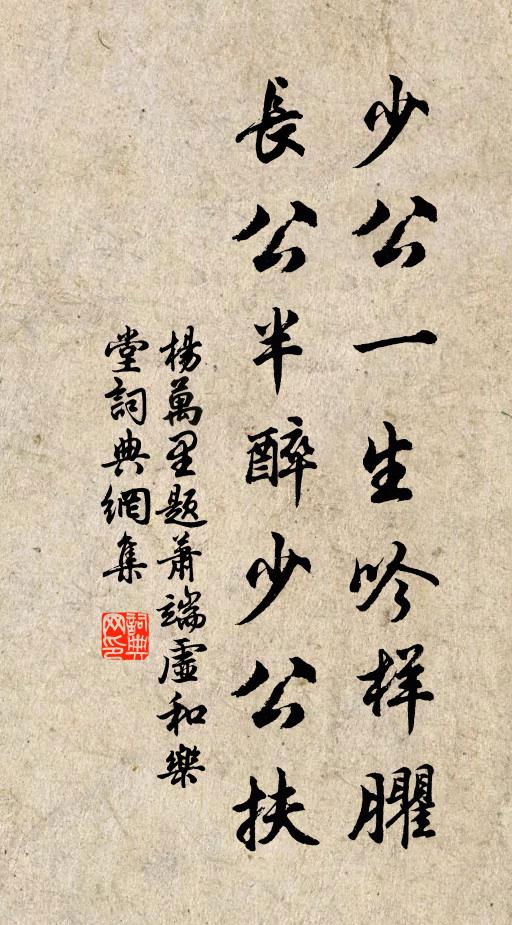 少公一生吟样臞
長公半醉少公扶
楊萬里题蕭端虛和樂
堂詞典網集
詞典
网印